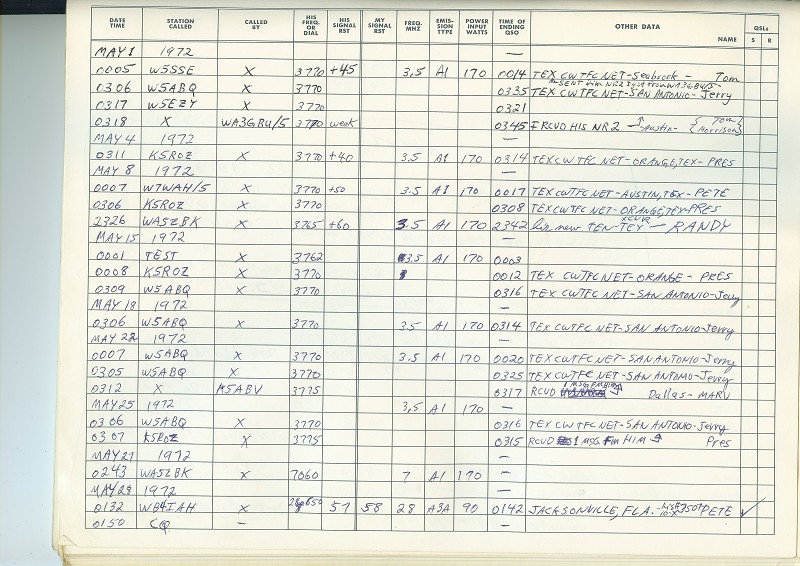 DATE TIME STATION CALLED CALLED BY HIS FREQ. OR DIAL HIS SIGNAL RST MY SIGNAL RST FREQ. MHZ EMIS- SION TYPE POWER INPUT WATTS TIME OF ENDING QSO OTHER DATA NAME QSLs S R
MAY 1 1972 —
0005 W5SSE X 3770 +45 3.5 A1 170 0014 TEX CW TFC NET - Seabrook - Tom
0306 W5ABQ X 3770 0335 TEX CWTFC NET - SAN ANTONIO - Jerry
0317 W5EZY X 3770 0321
0318 X WA3GBU/5 3770 weak 0345 I RCVD HIS NR2 ↑ Austin - { Tom Morrison }
MAY 4 1972 —
0311 K5ROZ X 3770 +40 3.5 A1 170 0314 TEX CW TFC NET - ORANGE, TEX - PRES
MAY 8 1972 —
0007 W7WAH/5 X 3770 +50 3.5 A1 170 0017 TEX CWTFC NET - AUSTIN, TEX - PETE
0306 K5ROZ X 3770 0308 TEX CWTFC NET - ORANGE, TEX - PRES
2326 WA5ZBK X 3765 +60 3.5 A1 170 2342 his new TEN-TEC XCVR — RANDY
MAY 15 1972 —
0001 TEST X 3762 3.5 A1 170 0003
0008 K5ROZ X 3770 0012 TEX CWTFC NET - ORANGE - PRES
0309 W5ABQ X 3770 0316 TEX CWTFC NET - SAN ANTONIO - Jerry
MAY 18 1972 —
0306 W5ABQ X 3770 3.5 A1 170 0314 TEX CWTFC NET - SAN ANTONIO - Jerry
MAY 22 1972 —
0007 W5ABQ X 3770 3.5 A1 170 0020 TEX CWTFC NET - SAN ANTONIO - Jerry
0305 W5ABQ X 3770 0325 TEX CWTFC NET - SAN ANTONIO - Jerry
0312 X K5ABV 3775 0317 RCVD 1 MSG FM HIM ↑ Dallas - MARV
MAY 25 1972 3.5 A1 170 —
0306 W5ABQ X 3770 0316 TEX CWTFC NET - SAN ANTONIO - Jerry
0307 K5ROZ X 3775 0315 RCVD 1 MSG Fm HIM ↑ Pres
MAY 27 1972 —
0243 WA5ZBK X 7060 7 A1 170 —
MAY 28 1972 —
0132 WB4IAH X 28,650 57 58 28 A3A 90 0142 JACKSONVILLE, FLA. - PETE ✓
0150 CQ — —